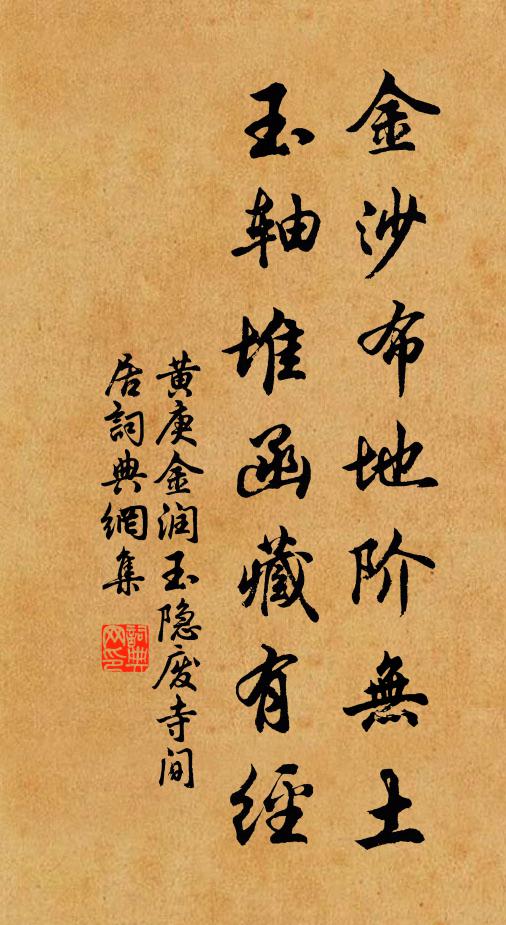 金沙布地阶無土
玉轴堆函藏有經
黄庚金润玉隐废寺间
居詞典網集
詞典
网印